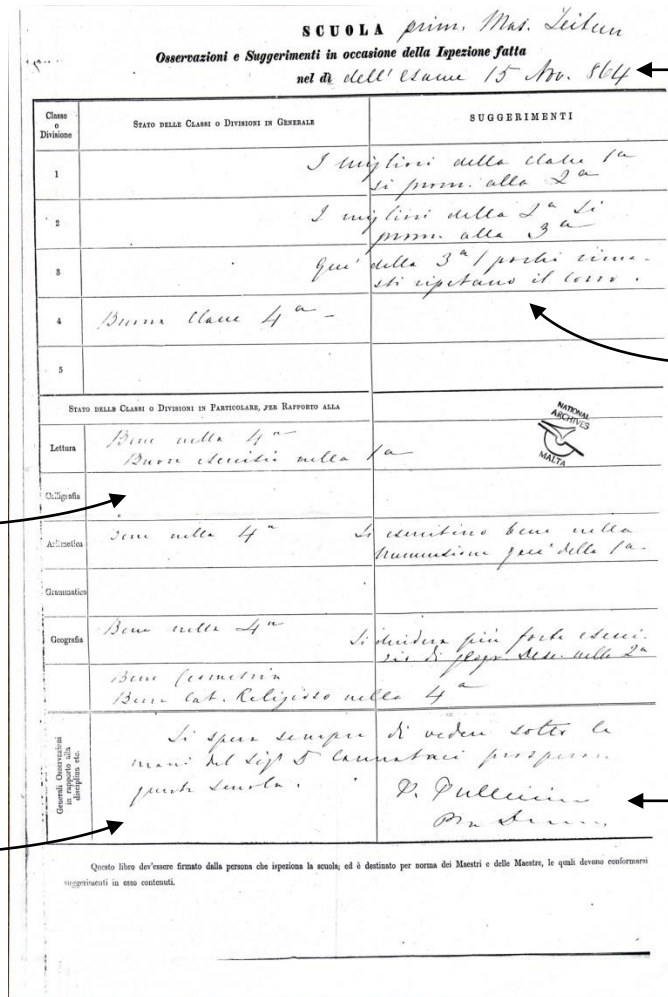 SCUOLA prim. Mas. Zeitun
Osservazioni e Suggerimenti in occasione della Ispezione fatta
nel dì dell'esame 15 Nov. 864
Classe o Divisione
STATO DELLE CLASSI O DIVISIONI IN GENERALE
SUGGERIMENTI
1
I migliori della classe 1a
si prom. alla 2a
2
I migliori della 2a si
prom. alla 3a
3
Que' della 3a pochi rima-
sti ripetano il corso.
4
Buona Classe 4a -
5
STATO DELLE CLASSI O DIVISIONI IN PARTICOLARE, PER RAPPORTO ALLA
NATIONAL ARCHIVES
MALTA
Lettura
Bene nella 4a
Buoni esercizi nella 1a
Calligrafia
Aritmetica
Bene nella 4a
Si esercitino bene nella
numerazione que' della 1a
Grammatica
Geografia
Bene nella 4a
Si desidera più forte eserci-
zio di geogr. Desc. nella 2a
Bene Geometria
Bene Cat. Religioso nella 4a
Generali Osservazioni
in rapporto alla
disciplina etc.
Si spera sempre di vedere sotto le
mani del Sigr D prosperare
questa scuola.
P. Pullicino
Questo libro dev'essere firmato dalla persona che ispeziona la scuola; ed è destinato per norma dei Maestri e delle Maestre, le quali devono conformarsi
suggerimenti in esso contenuti.